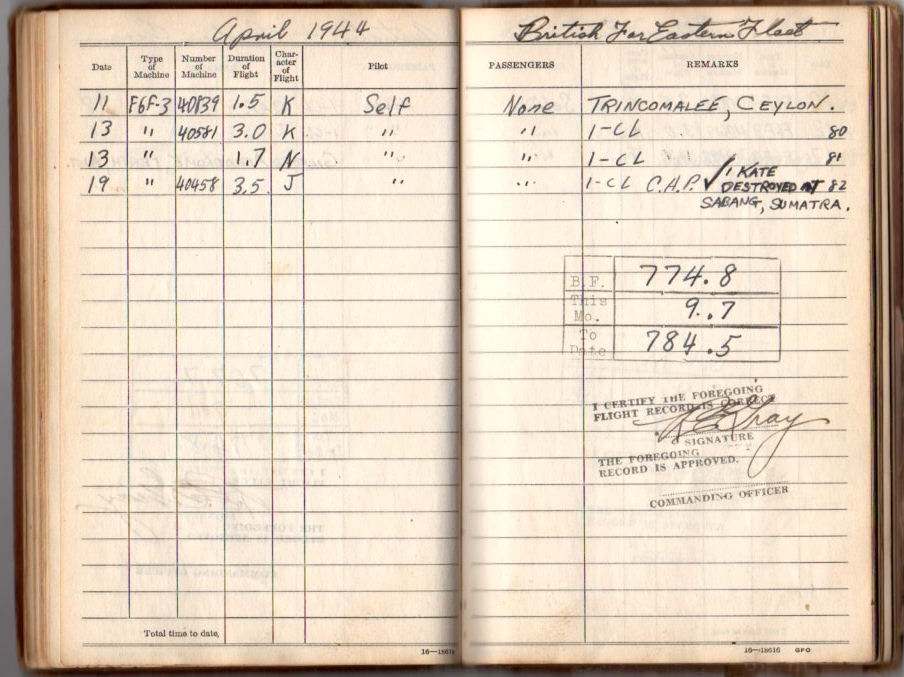 April 1944
Date Type of Machine Number of Machine Duration of Flight Char- acter of Flight Pilot
11 F6F-3 40839 1.5 K Self
13 " 40581 3.0 K "
13 " 1.7 N "
19 " 40458 3.5 J "
Total time to date,
16—1861
British Far Eastern Fleet
PASSENGERS REMARKS
None TRINCOMALEE, CEYLON.
" 1-CL 80
" 1-CL 81
" 1-CL C.A.P. ✓ 1 KATE
DESTROYED AT 82
SABANG, SUMATRA.
B.F. 774.8
This Mo. 9.7
To Date 784.5
I CERTIFY THE FOREGOING
FLIGHT RECORD IS CORRECT
SIGNATURE
THE FOREGOING
RECORD IS APPROVED.
COMMANDING OFFICER
16—18616 GPO